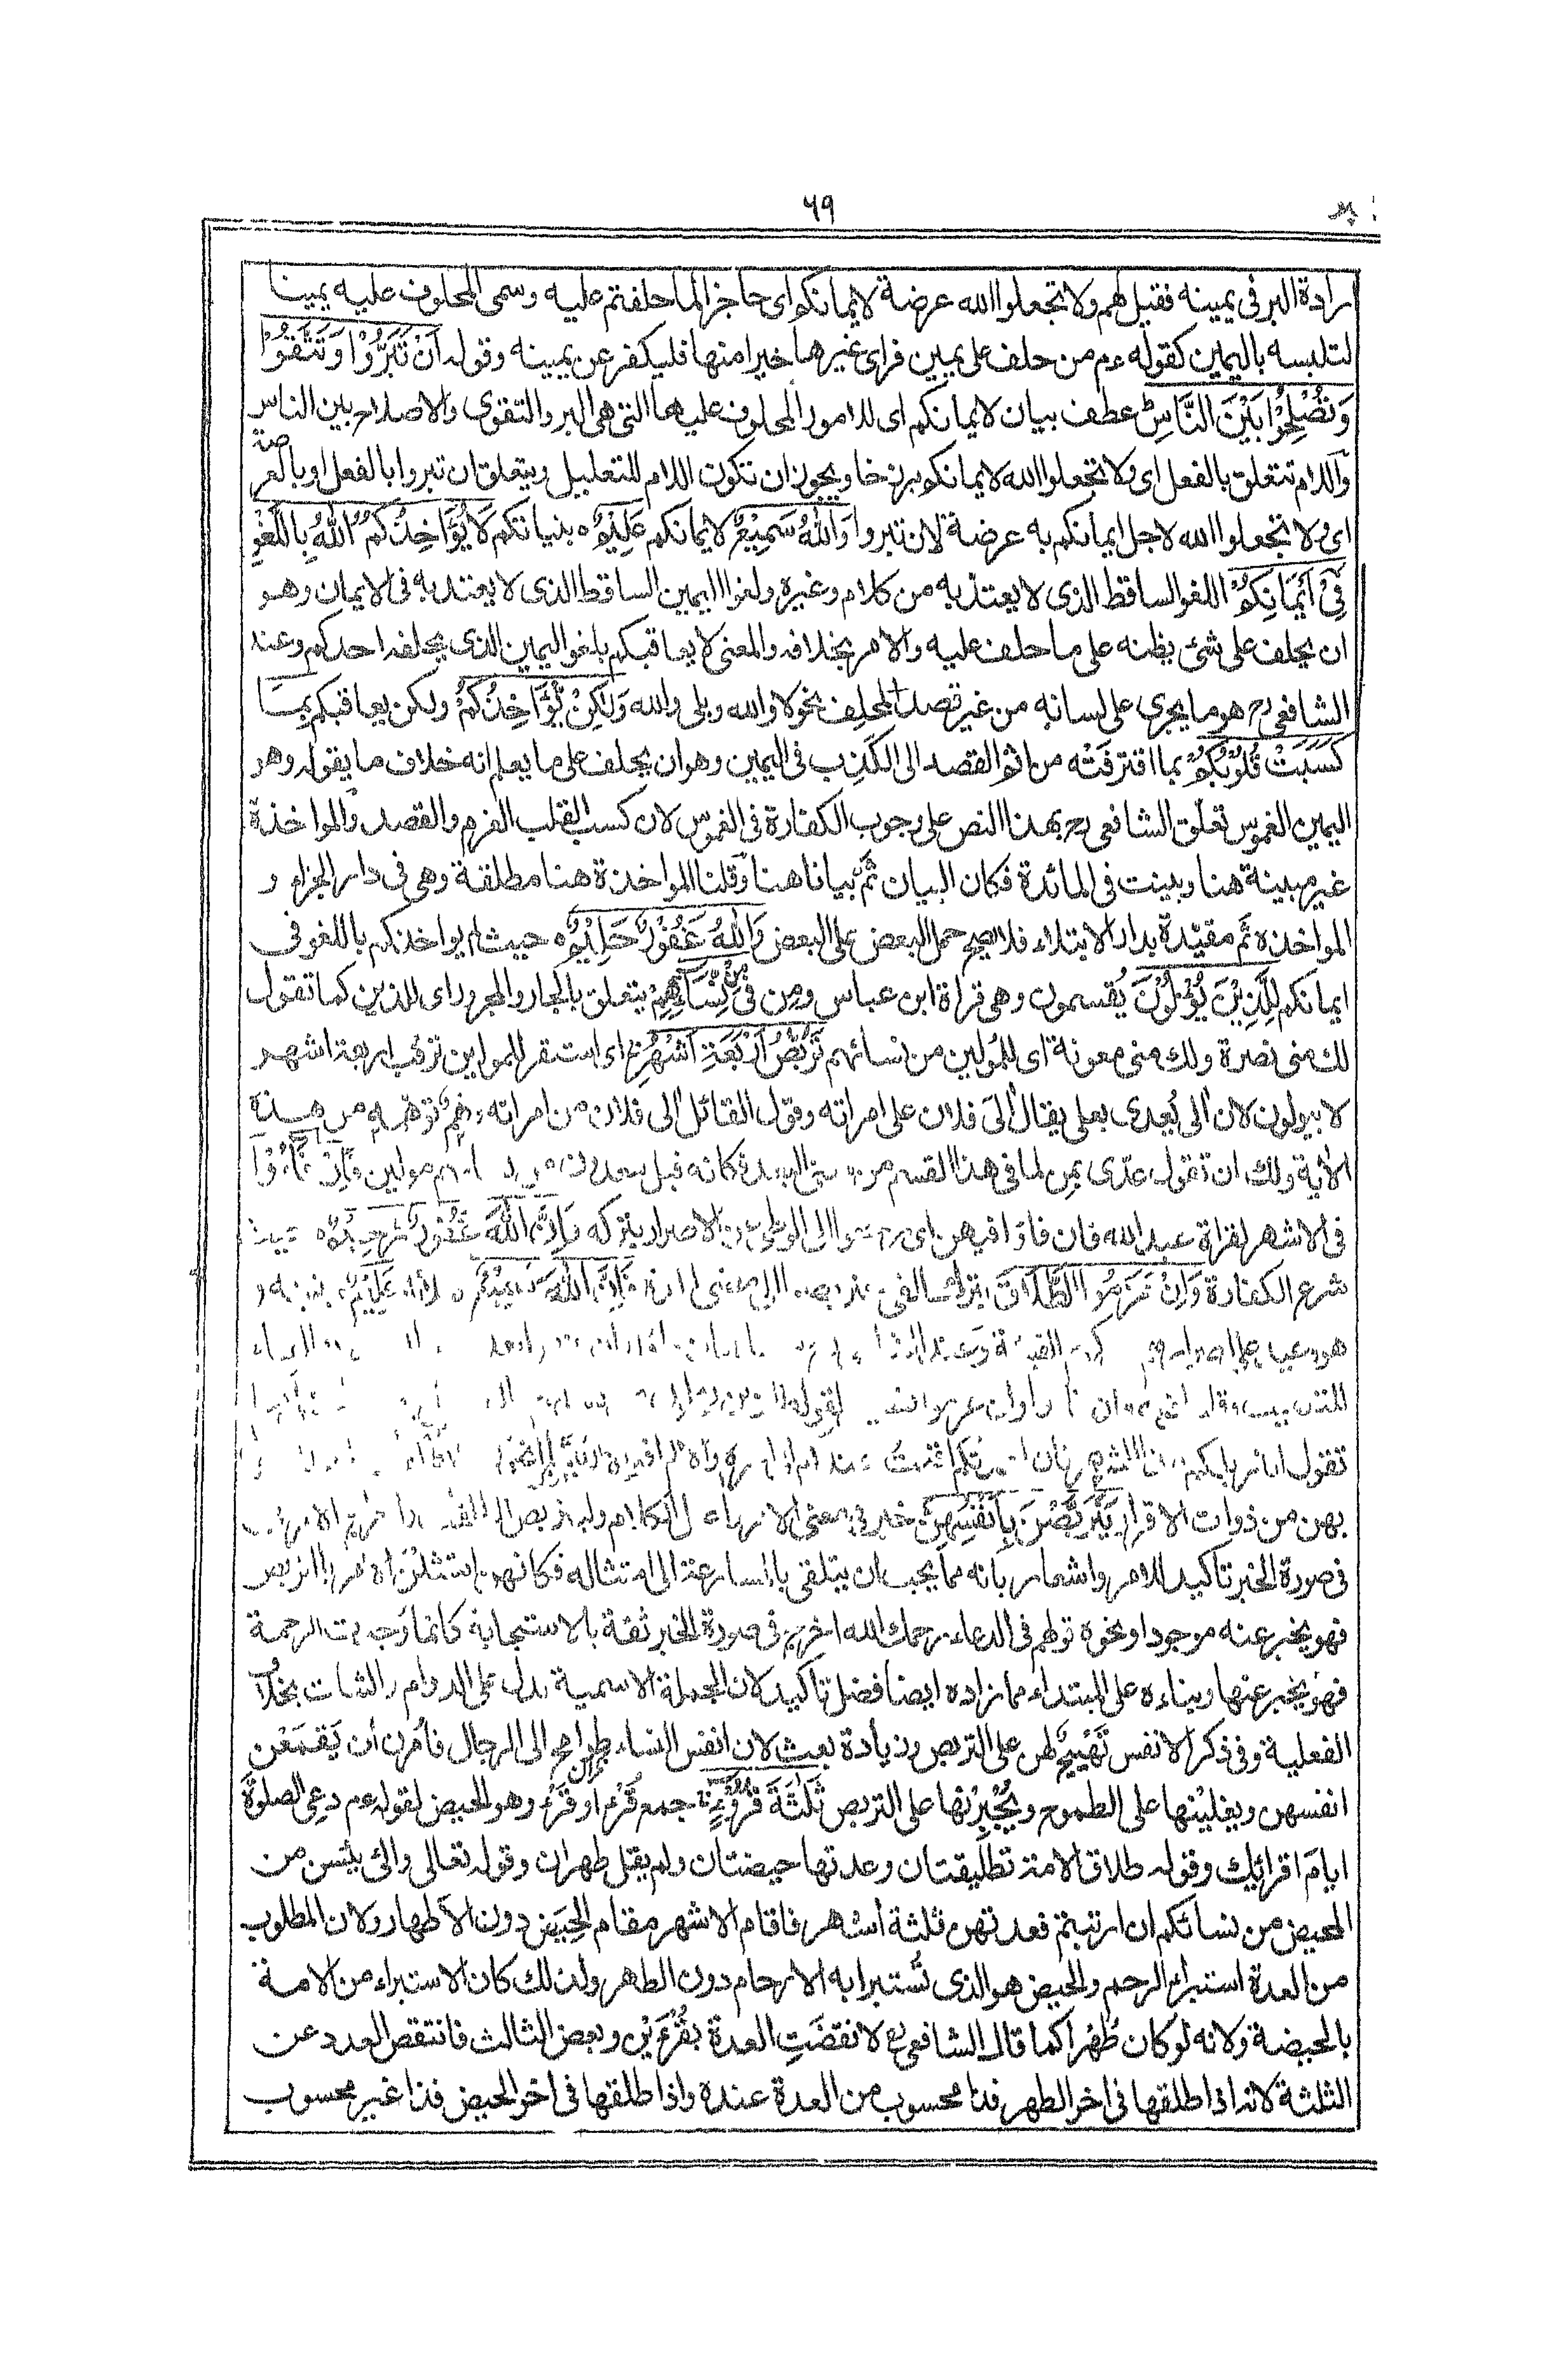 ٦٩
ارادة البر فى يمينه فقيل لهم ولا تجعلوا الله عرضة لايمانكم اى حاجزا لما حلفتم عليه وسمى المحلوف عليه يمينا
لتلبسه باليمين كقوله عم من حلف على يمين فراى غيرها خيرا منها فليكفر عن يمينه وقوله اَنْ تَبَرُّوْا وَتَتَّقُوْا
وَتُصْلِحُوْا بَيْنَ النَّاسِ عطف بيان لايمانكم اى للامور المحلوف عليها التى هى البر والتقوى والاصلاح بين الناس
واللام تتعلق بالفعل اى ولا تجعلوا الله لايمانكم برزخا ويجوز ان تكون اللام للتعليل ويتعلق ان تبروا بالفعل او بالعرضة
اى ولا تجعلوا الله لاجل ايمانكم به عرضة لان تبروا وَاللّٰهُ سَمِيْعٌ لايمانكم عَلِيْمٌ ه بنياتكم لَا يُؤَاخِذُكُمُ اللّٰهُ بِاللَّغْوِ
فِىْٓ اَيْمَانِكُمْ اللغو الساقط الذى لا يعتد به من كلام وغيره ولغو اليمين الساقط الذى لا يعتد به فى الايمان وهو
ان يحلف على شئ يظنه على ما حلف عليه والامر بخلافه والمعنى لا يعاقبكم بلغو اليمين الذى يحلفه احدكم وعند
الشافعى رح هو ما يجرى على لسانه من غير قصد للحلف نحو لا والله وبلى والله وَلٰكِنْ يُّؤَاخِذُكُمْ ولكن يعاقبكم بِمَا
كَسَبَتْ قُلُوْبُكُمْ بما اقترفته من اثم القصد الى الكذب فى اليمين وهو ان يحلف على ما يعلم انه خلاف ما يقوله وهو
اليمين الغموس تعلق الشافعى رح بهذا النص على وجوب الكفارة فى الغموس لان كسب القلب العزم والقصد والمواخذة
غير مبينة هنا وبينت فى المائدة فكان البيان ثَمَّ بيانا هنا وقلنا المواخذة هنا مطلقة وهى فى دار الجزاء و
المواخذة ثَمَّ مقيّدة بدار الابتلاء فلا يصح حمل البعض على البعض وَاللّٰهُ غَفُوْرٌ حَلِيْمٌ ه حيث لم يواخذكم باللغو فى
ايمانكم لِلَّذِيْنَ يُؤْلُوْنَ يُقسمون وهى قراة ابن عباس ومِن فى مِنْ نِّسَآئِهِمْ يتعلق بالجار والمجرور اى للذين كما تقول
لك منى نصرة ولك منى معونة اى للمُولين من نسائهم تَرَبُّصُ اَرْبَعَةِ اَشْهُرٍ اى استقر للمولين ترقب اربعة اشهر
لا بيولون لان آلى يُعدى بعلى يقال آلى فلان على امراته وقول القائل آلى فلان من امراته وهم توهمه من هذه
الآية ولك ان تقول عدّى بمِن لما فى هذا القسم من معنى البعد فكانه قيل يبعدون من نسائهم مولين فَاِنْ فَآءُوْا
فى الاشهر لقراة عبد الله فان فاؤا فيهن اى رجعوا الى الوطى عن الاصرار بتركه فَاِنَّ اللّٰهَ غَفُوْرٌ رَّحِيْمٌ ه حيث
شرع الكفارة وَاِنْ عَزَمُوا الطَّلَاقَ بترك الفئ فَاِنَّ اللّٰهَ سَمِيْعٌ لايلائه عَلِيْمٌ بنيته و
هو وعيد على
تقول انا نزيلكم هذا الشهر فان
بهن من ذوات الاقراء يَتَرَبَّصْنَ بِاَنْفُسِهِنَّ خبر فى معنى الامر واصل الكلام وليتربص المطلقات واخراج الامر
فى صورة الخبر تاكيد للامر واشعار بانه مما يجب ان يتلقى بالمسارعة الى امتثاله فكانهن امتثلن الامر بالتربص
فهو يخبر عنه موجودا ونحوه قولهم فى الدعاء رحمك الله اخرج فى صورة الخبر ثقة بالاستجابة كانما وجدت الرحمة
فهو يخبر عنها وبناءه على المبتداء مما زاده ايضا فضل تاكيد لان الجملة الاسمية تدل على الدوام والثبات بخلاف
الفعلية وفى ذكر الانفس تَهْيِيجٌ لهن على التربص وزيادة بعث لان انفس النساء طوامح الى الرجال فأُمرن أن يَقمَعْن
انفسهن ويغلبْنها على الطموح ويُجْبِرْنها على التربص ثَلٰثَةَ قُرُوْٓءٍ جمع قُرْءٍ او قَرْءٍ وهو الحيض لقوله عم دعى الصلوة
ايام اقرائك وقوله طلاق الامة تطليقتان وعدتها حيضتان ولم يقل طهران وقوله تعالى والئ يئسن من
المحيض من نسائكم ان ارتبتم فعدتهن ثلثة اشهر فاقام الاشهر مقام الحِيَض دون الاطهار ولان المطلوب
من العدة استبراء الرحم والحيض هو الذى تُستبرا به الارحام دون الطهر ولذلك كان الاستبراء من الامة
بالحيضة ولانه لو كان طُهْرا كما قال الشافعى رح لانقضَتِ العدة بقُرْءَيْنِ وبعض الثالث فانتقص العدد عن
الثلثة لانه اذا طلقها فى اخر الطهر فذا محسوب من العدة عنده واذا طلقها فى اخر الحيض فذا غير محسوب